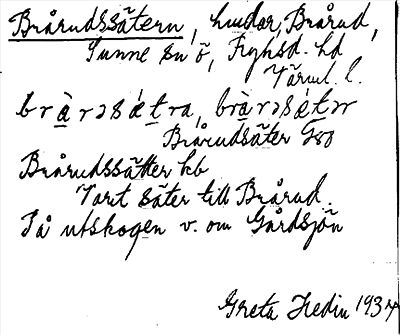 Brårudssätern, hmdar, Brårud,
Sunne sn ö, Fryksd. hd
Värml. l.
bràrəsǽtra, bràrəsǽtər
Brårudsäter Gso
Brårudssätter kb
Vart säter till Brårud.
På utskogen v. om Gårdsjön
Greta Hedin 1934